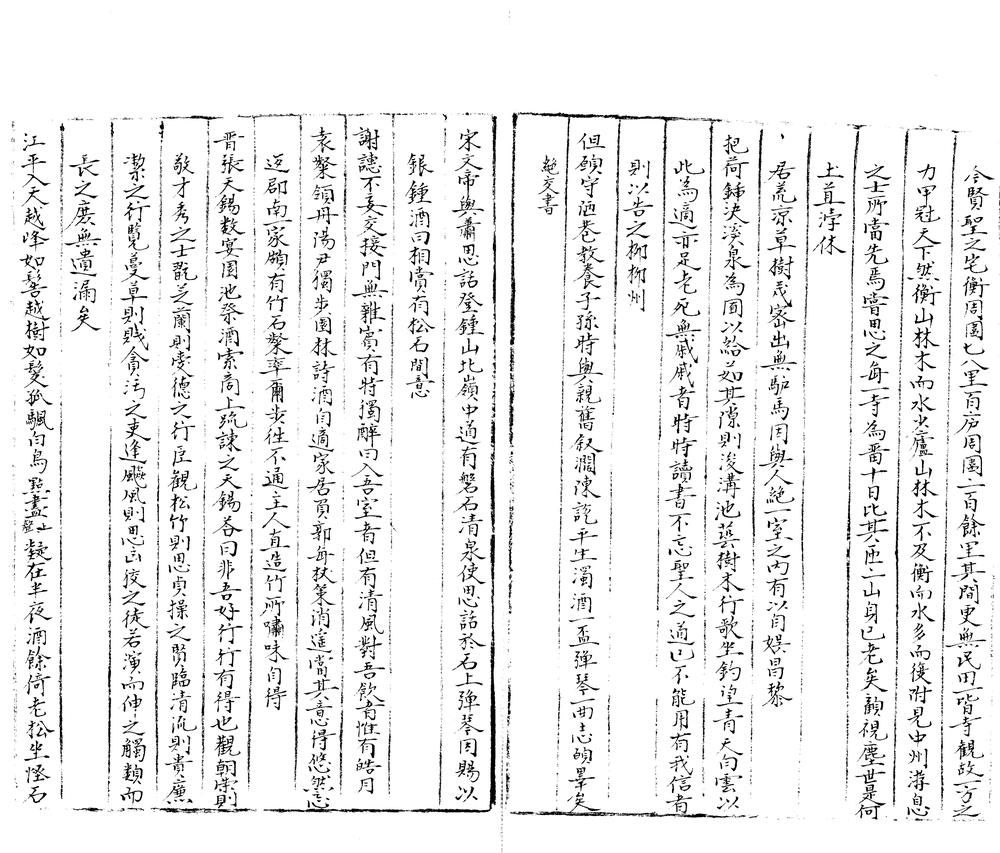 今賢聖之宅衡周圍七八里百𢈔周圍二百餘里其間更無民田一皆寺観故一方之
力甲冠天下然衡山林木而水少廬山林木不及衡而水多而後附見中州游息
之士所當先焉嘗思之每一寺為畨十日比其迊二山身已老矣顧視塵世是何
土苴浮休
居荒凉草樹茂密出無馿馬因與人絶一室之内有以自娛昌黎
把荷鍤決溪泉為圃以給茹其隙則浚溝池藝樹木行歌坐釣望青天白雲以
此為適亦足老死無戚戚者時時讀書不忘聖人之道已不能用有我信者
則以告之柳柳州
但頋守陋巷教養子孫時與親舊叙濶陳說平生濁酒一盃弹琴一曲志頋畢矣
絶交書
宋文帝與蕭思話登鍾山北嶺中道有磐石清泉使思話於石上弹琴因賜以
銀鍾酒曰相賞有松石間意
謝譓不妄交接門無雜賓有時獨醉曰入吾室者但有清風對吾飲者惟有皓月
袁粲領丹陽尹獨步園林詩酒自適家居負郭每杖策消遥當其意得悠然忘
迈郡南一家頗有竹石粲率爾步往不通主人直造竹所嘯咏自得
晋張天錫數宴園池祭酒索商上疏諫之天錫荅曰非吾好行行有得也觀朝榮則
敬才秀之士翫芝蘭則愛德之行臣觀松竹則思貞操之賢臨清流則貴廉
潔之行覽蔓草則賎貪污之吏逢飈風則思凶狡之徒若演而伸之觸類而
長之庶無遺漏矣
江平入天越峰如髻越樹如髮孤颿白鳥點盡上凝在半夜酒餘倚老松坐恠石